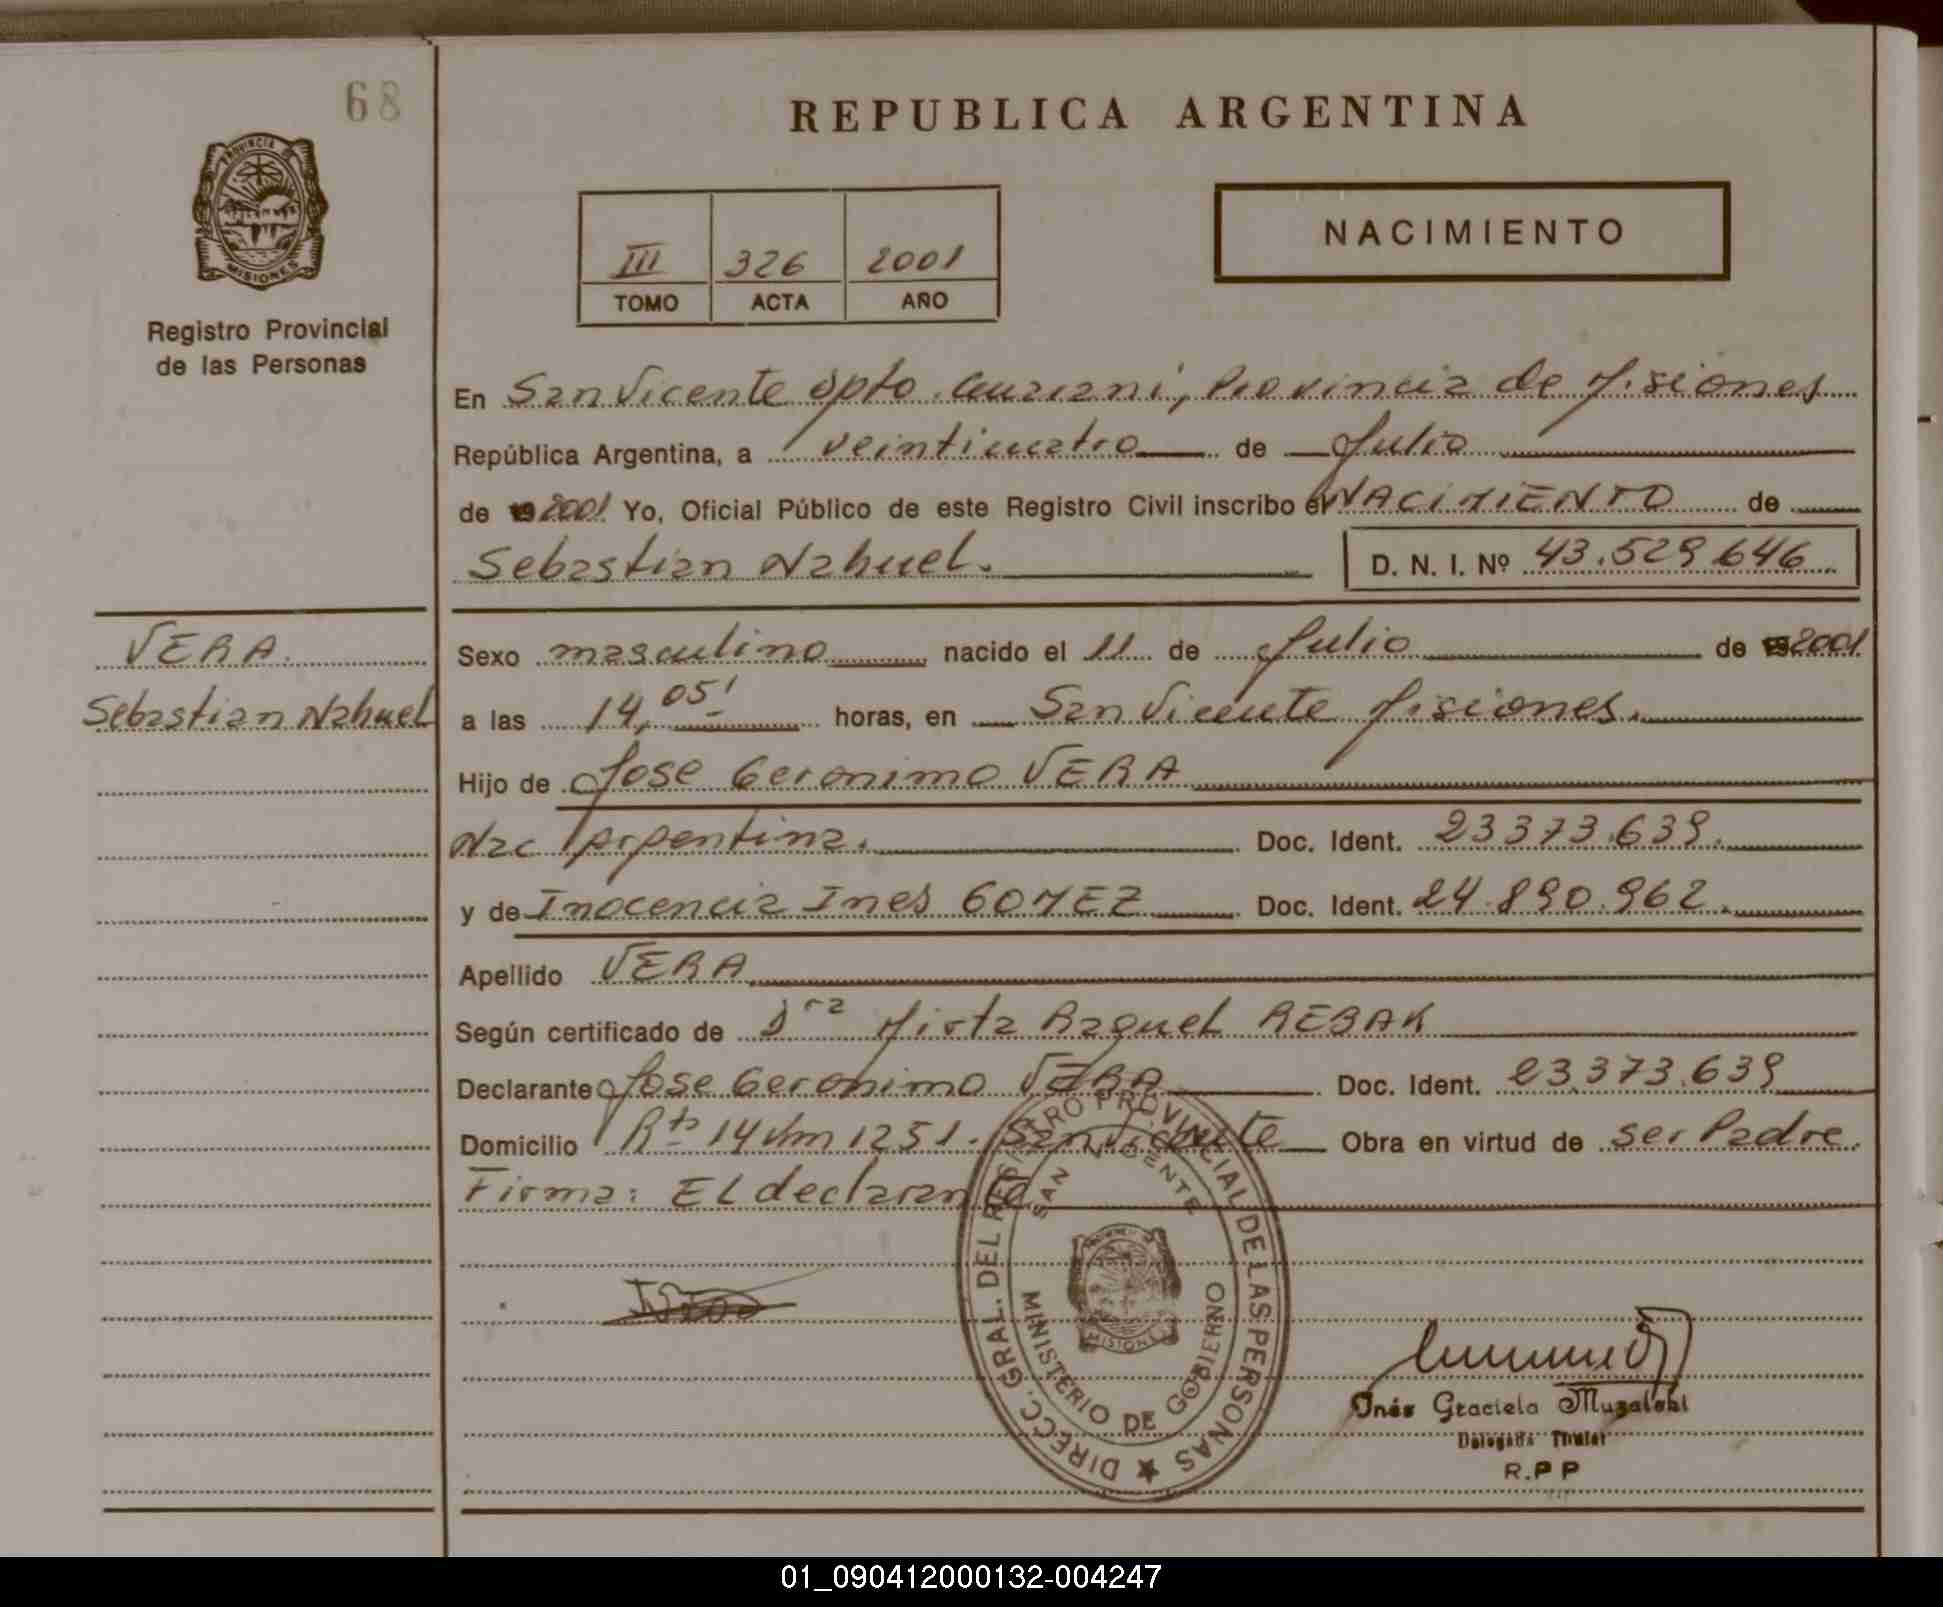 68
REPUBLICA ARGENTINA
PROVINCIA DE
MISIONES
Registro Provincial
de las Personas
III 326 2001
TOMO ACTA AÑO
NACIMIENTO
En San Vicente Dpto. Guarani, Provincia de Misiones
República Argentina, a veinticuatro de Julio
de 19 2001 Yo, Oficial Público de este Registro Civil inscribo el NACIMIENTO de
Sebastian Nahuel. D. N. I. Nº 43.529.646
VERA
Sebastian Nahuel
Sexo masculino nacido el 11 de Julio de 19 2001
a las 14,05' horas, en San Vicente Misiones.
Hijo de Jose Geronimo VERA
Nac Argentina. Doc. Ident. 23.373.639.
y de Inocencia Ines GOMEZ Doc. Ident. 24.890.962.
Apellido VERA
Según certificado de Dra Mirta Raquel REBAK
Declarante Jose Geronimo VERA Doc. Ident. 23.373.639
Domicilio Rta 14 Km 1251. San Vicente Obra en virtud de ser Padre.
Firma: El declarante
DIRECC. GRAL. DEL REGISTRO PROVINCIAL DE LAS PERSONAS
SAN VICENTE
MISIONES
MINISTERIO DE GOBIERNO
Inés Graciela Muzaloki
Delegada Titular
R.P P
01_090412000132-004247